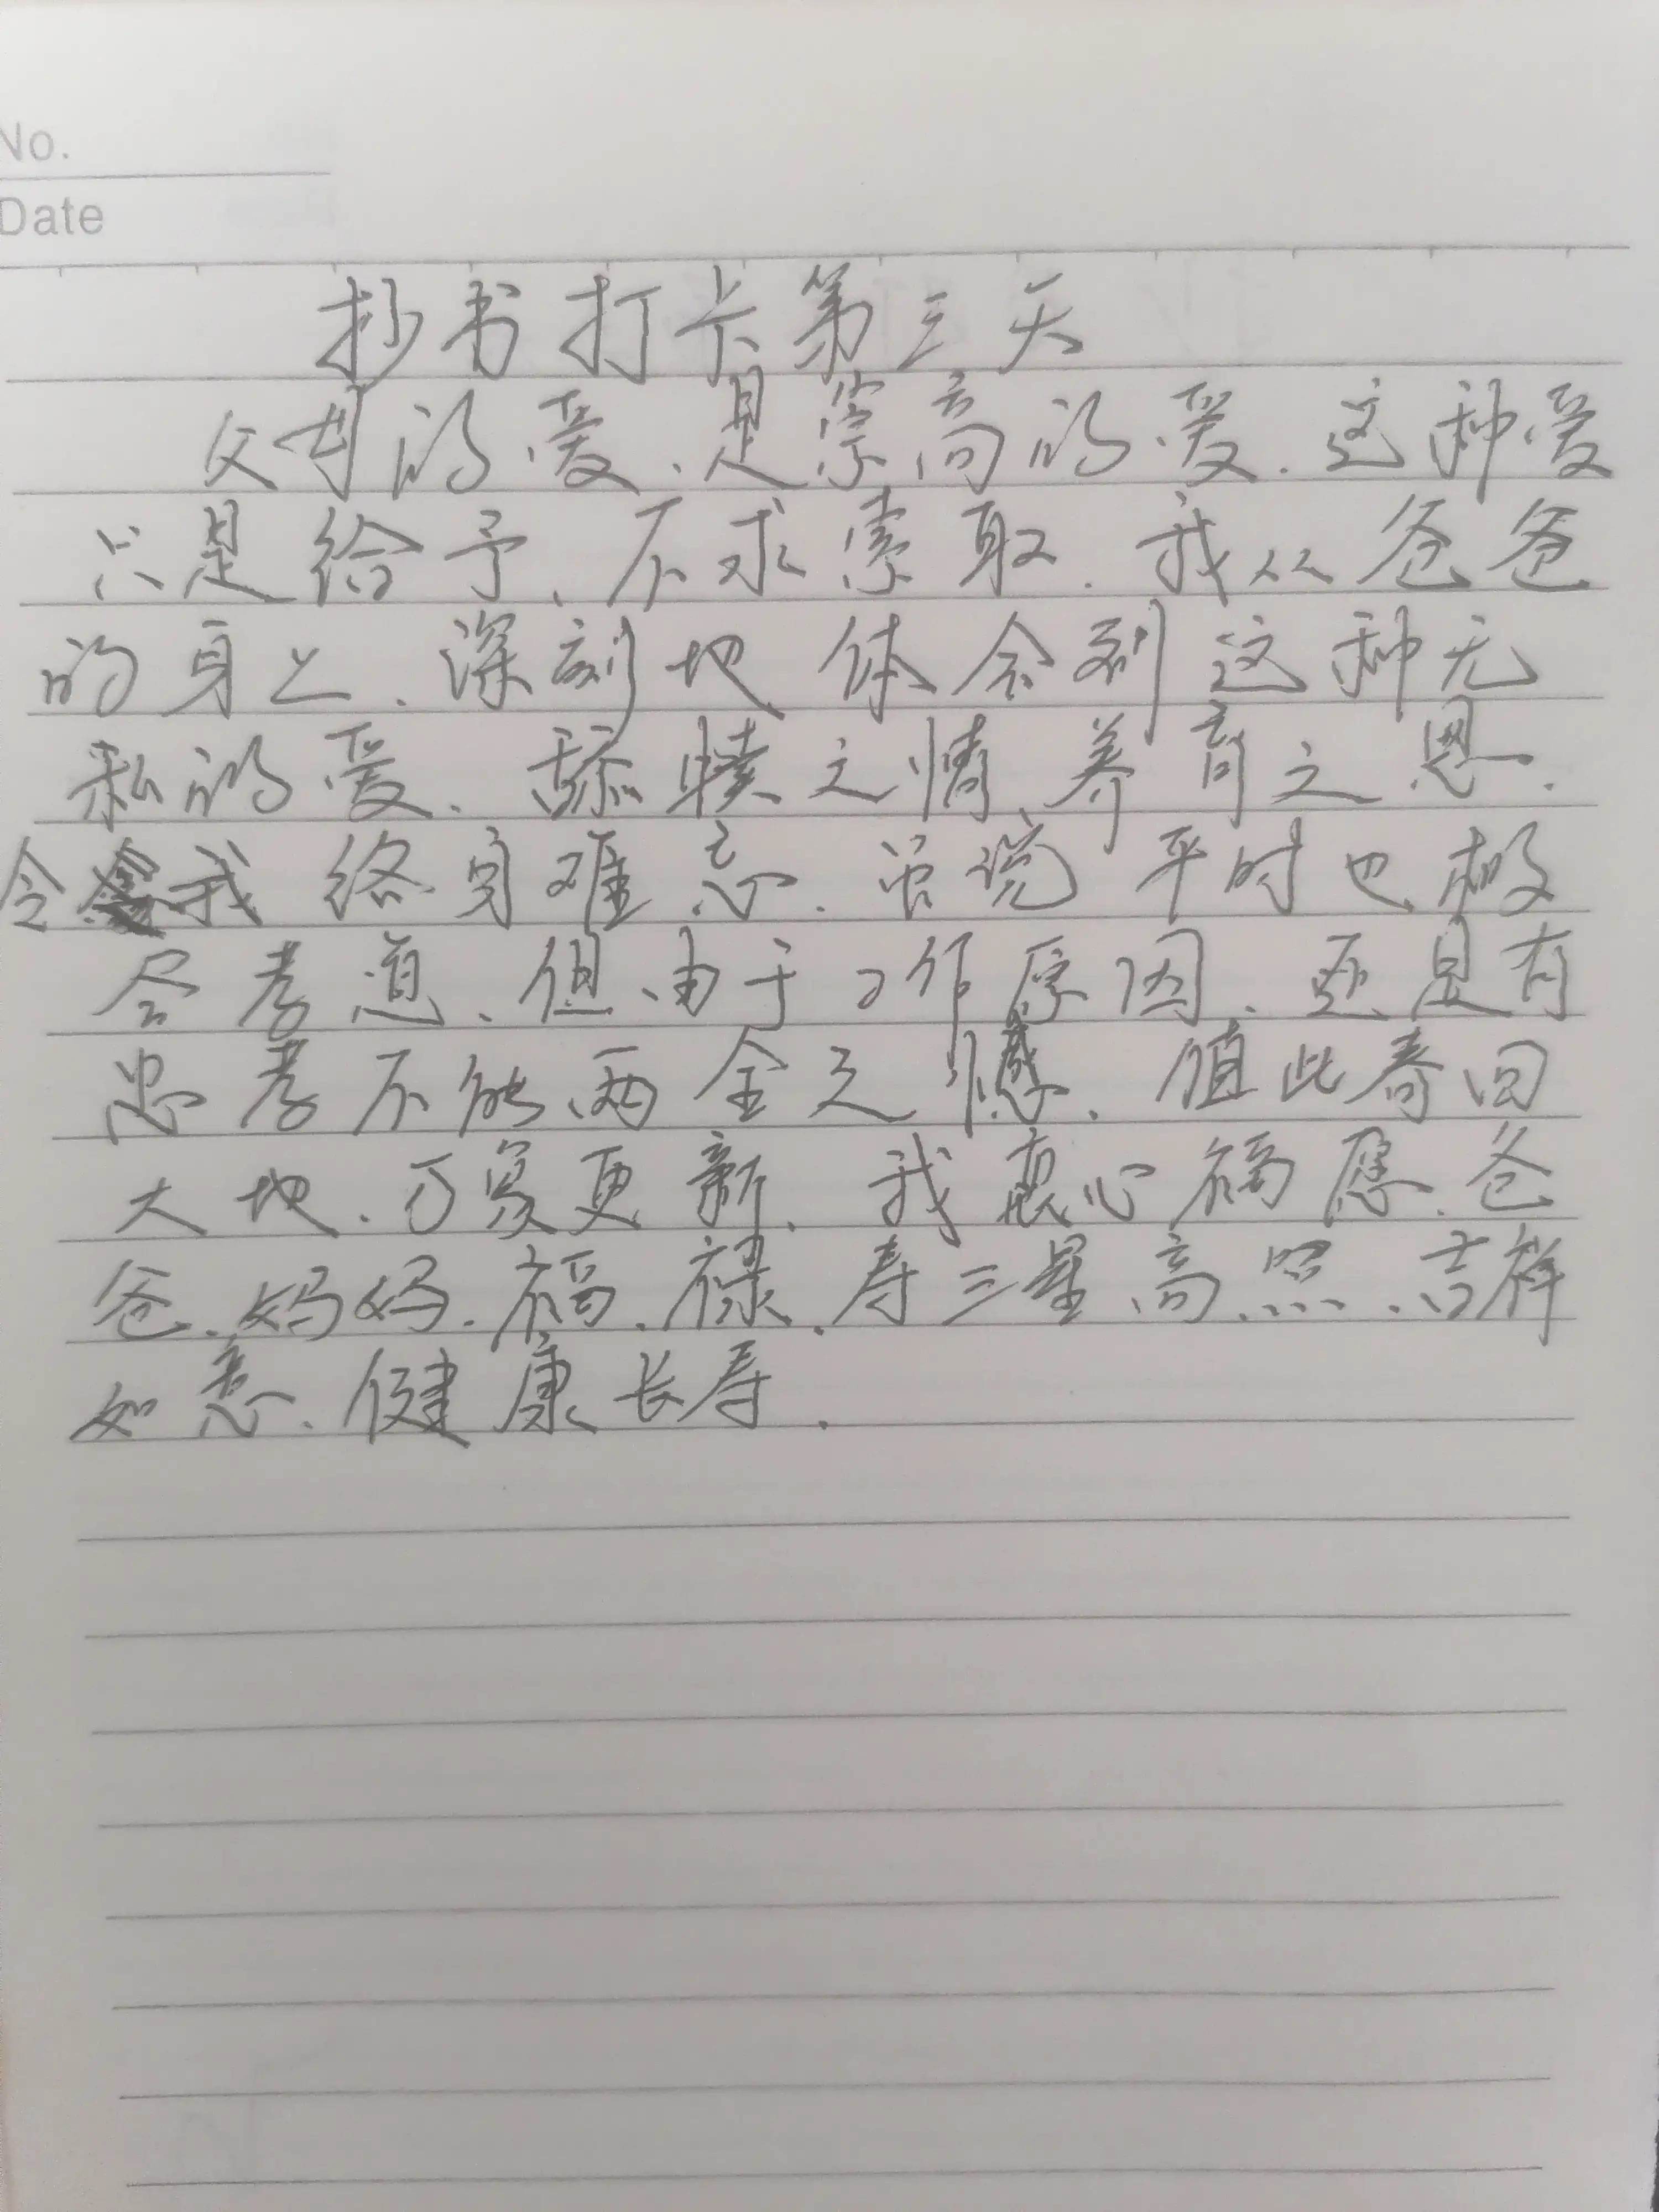 No.
Date
抄书打卡第三天
父母的爱、是崇高的爱.这种爱
只是给予、不求索取.我从爸爸
的身上、深刻地体会到这种无
私的爱.舔犊之情、养育之恩.
令我终身难忘.虽说平时也极
尽孝道、但由于工作原因、还是有
忠孝不能两全之憾、值此春回
大地、万象更新、我衷心祝愿爸
爸、妈妈.福、禄、寿三星高照、吉祥
如意、健康长寿.